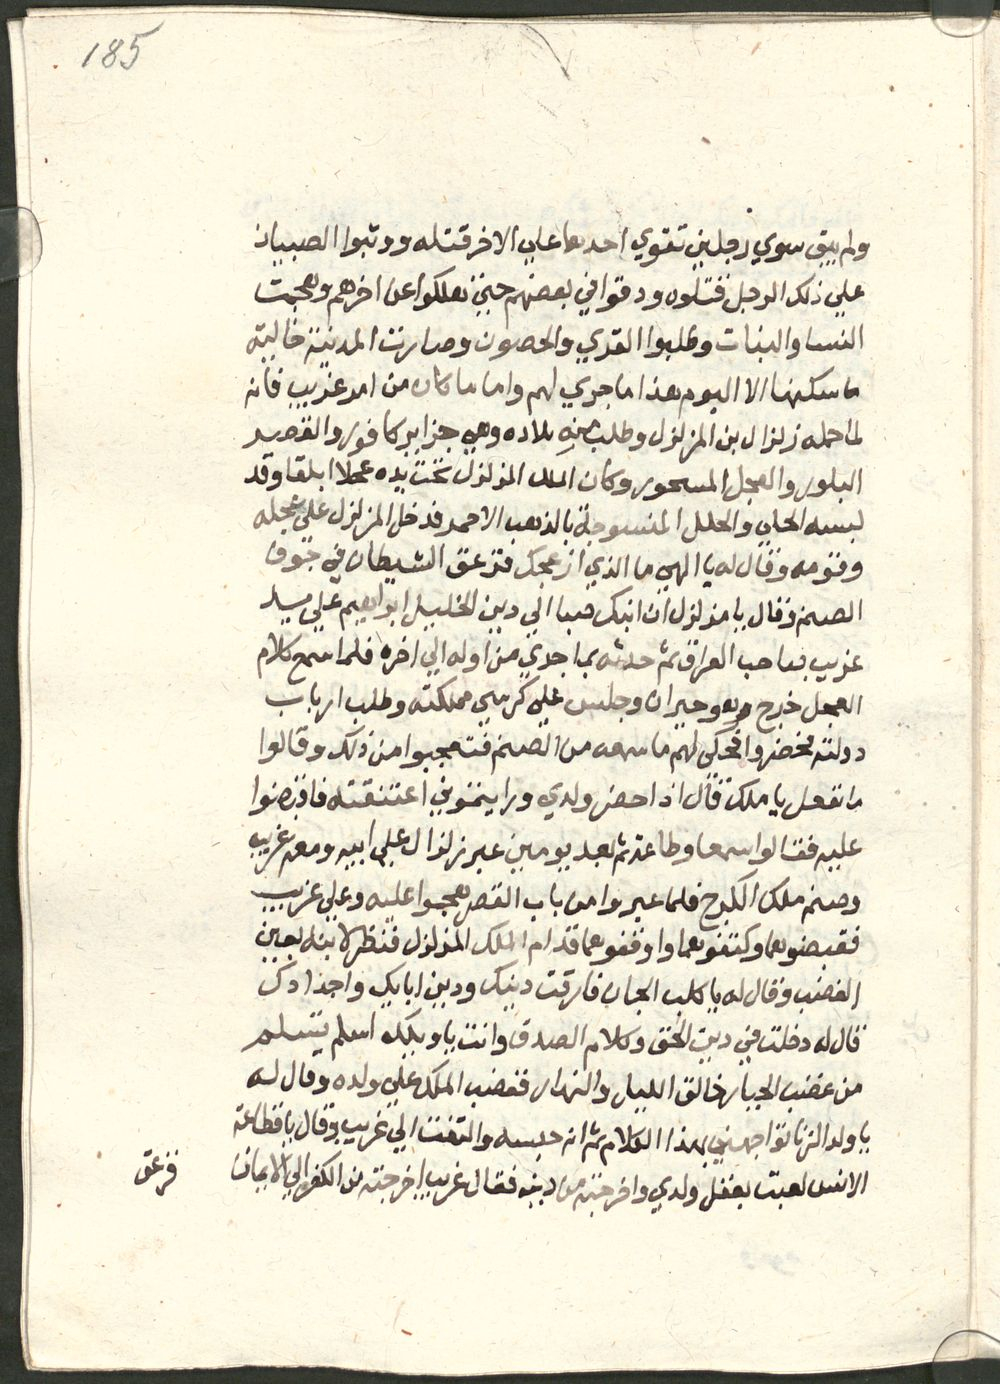 185
ولم يبق سوي رجلين تقوي احدهما علي الاخر قتله ووثبوا الصبيان
علي ذلك الرجل فقتلوه ودقوا في بعضهم حتي هلكوا عن اخرهم وهجمت
النسا والبنات وطلبوا القري والحصون وصارت المدينة خالية
ما سكنها الا اليوم هذا ما جري لهم واما ما كان من امر غريب فانه
لما حمله زلزال بن المزلزل وطلب به بلاده وهي جزاير كافور والقصر
البلور والعجل المسحور وكان الملك المزلزل تحت يده عجلا ابلقا وقد
لبسه الحلي والحلل المنسوجة بالذهب الاحمر فدخل المزلزل علي عجله
وقومه وقال له يا الهي ما الذي ازعجك فزعق الشيطان في جوف
الصنم وقال يا مزلزل ان ابنك صبا الي دين الخليل ابراهيم علي يد
غريب صاحب العراق ثم حدثه بما جري من اوله الي اخره فلما سمع كلام
العجل خرج وهو حيران وجلس علي كرسي مملكته وطلب ارباب
دولته فحضروا فحكي لهم ما سمعه من الصنم فتعجبوا من ذلك وقالوا
ما نفعل يا ملك قال اذا حضر ولدي ورايتموني اعتنقته فاقبضوا
عليه فقالوا سمعا وطاعة ثم بعد يومين عبر زلزال علي ابيه ومعه غريب
وصنم ملك الكرج فلما عبروا من باب القصر هجموا عليه وعلي غريب
فقبضوهما وكتفوهما واوقفوهما قدام الملك المزلزل فنظر لابنه بعين
الغضب وقال له يا كلب الجان فارقت دينك ودين ابايك واجدادك
قال له دخلت في دين الحق وكلام الصدق وانت يا ويلك اسلم تسلم
من غضب الجبار خالق الليل والنهار فغضب الملك علي ولده وقال له
يا ولد الزنا تواجهني بهذا الكلام ثم انه حبسه والتفت الي غريب وقال يا قطاعة
الانس لعبت بعقل ولدي واخرجته من دينه فقال غريب اخرجته من الكفر الي الايمان
فزعق